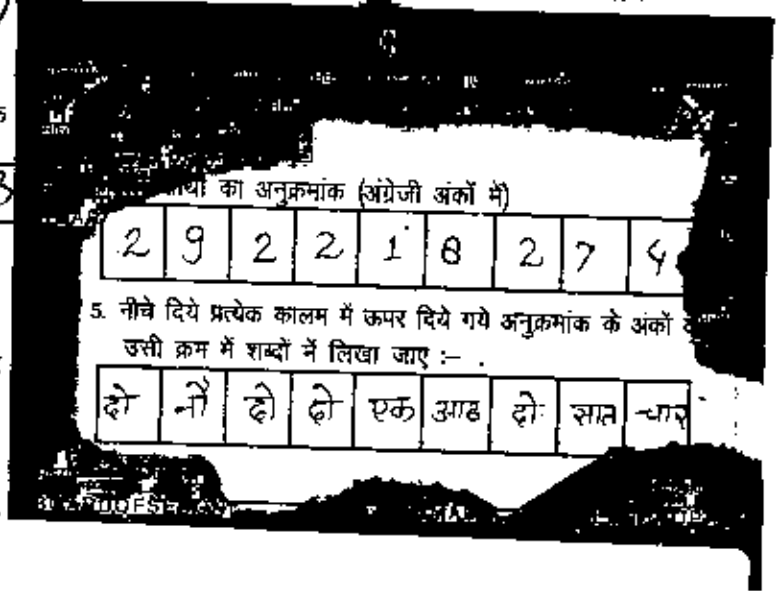 का अनुक्रमांक (अंग्रेजी अंकों में)
2 9 2 2 1 8 2 7 4
5. नीचे दिये प्रत्येक कालम में ऊपर दिये गये अनुक्रमांक के अंकों
उसी क्रम में शब्दों में लिखा जाए :–
दो नौ दो दो एक आठ दो सात चार